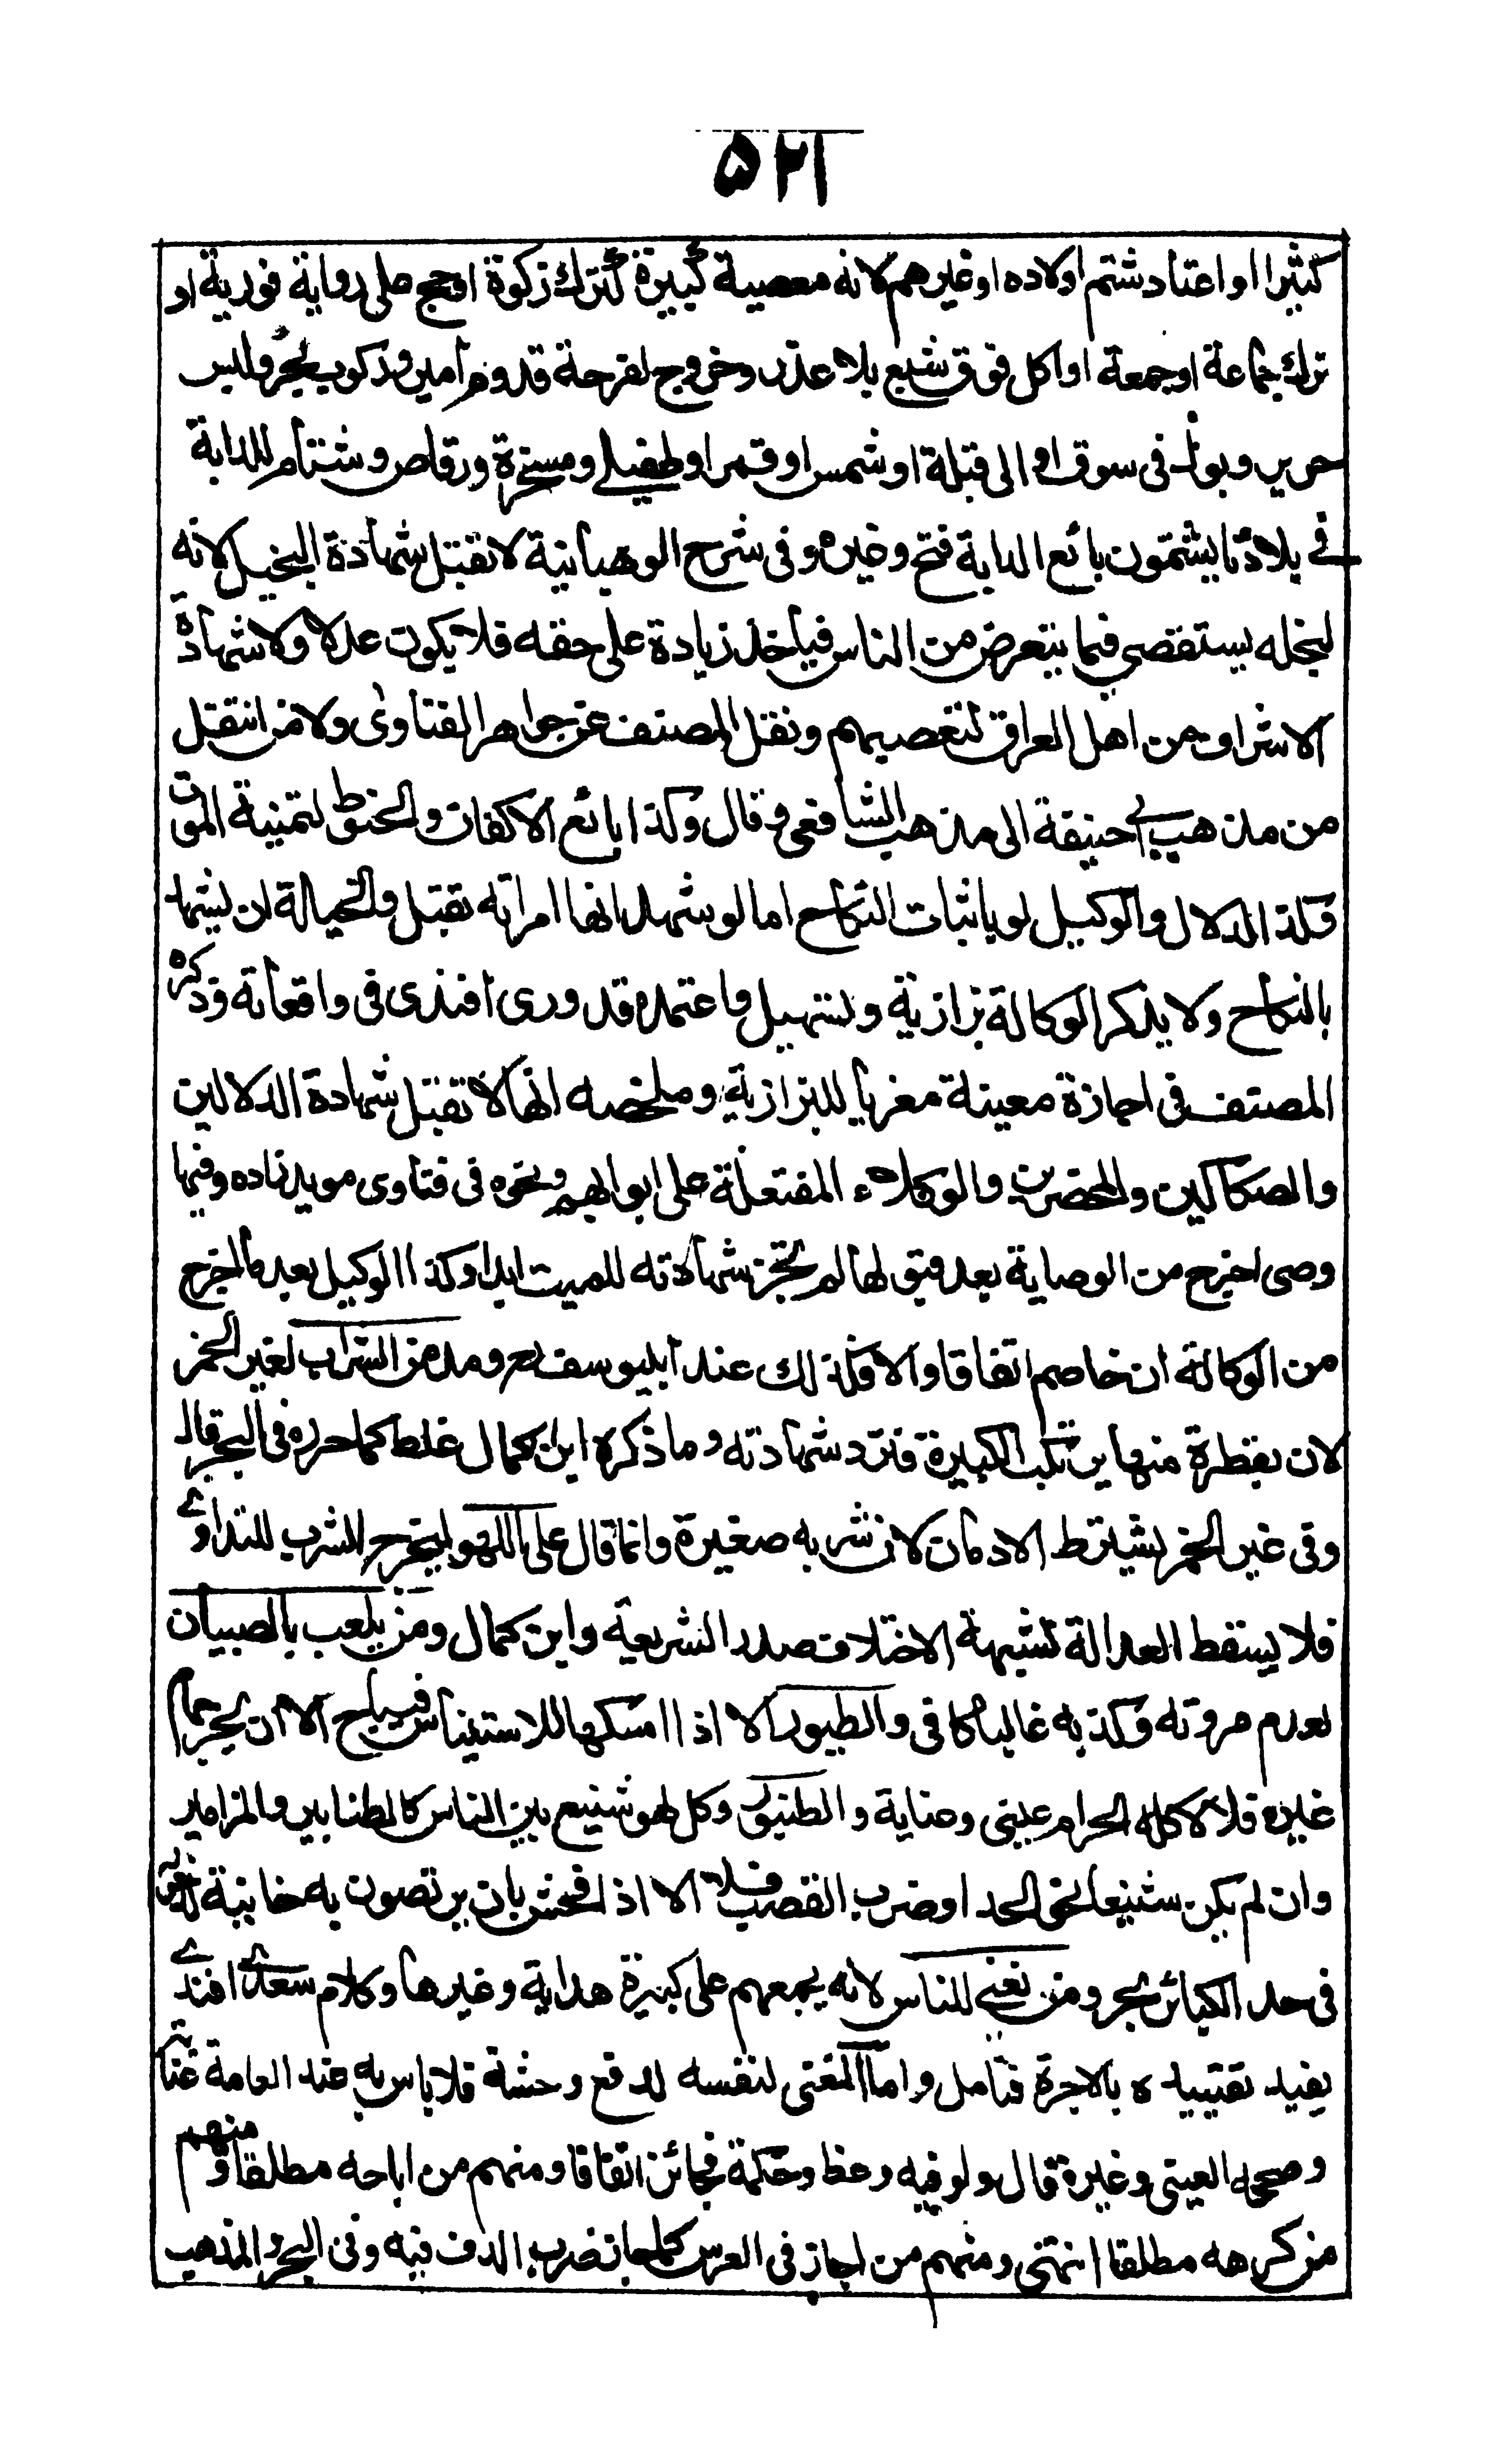 ۵۲۱
كثيرا او اعتاد شتم اولاده او غيرهم لانه معصية كبيرة كترك زكوة او حج على رواية فورية او
ترك جماعة او جمعة او اكل فوق شبع بلا عذر وخروج لفرجة قدوم امير وركوب بحر ولبس
حرير وبول فى سوق او الى قبلة او شمس او قمر او طفيلے ومسخرة ورقاص وشتام للدابة
فے بلادنا يشتمون بائع الدابة فتح وغيره وفى شرح الوهبانية لا تقبل شهادة البخيل لانه
لبخله يستقصى فيما يتعرض من الناس فياخذ زيادة على حقه فلا يكون عدلا ولا شهادة
الاشراف من اهل العراق لتعصبهم ونقل المصنف عن جواهر الفتاوى ولا من انتقل
من مذهب ابے حنيفة الى مذهب الشافعى وقال وكذا بائع الاكفان والحنوط لتمنيه الموت
وكذا الدلال والوكيل لو باثبات النكاح اما لو شهد انها امراته تقبل والحيلة ان يشهد
بالنكاح ولا يذكر الوكالة بزازية وتسهيل واعتمده قدورى افندى فى واقعاته وذكره
المصنف فى اجازة معينة معزيا للبزازية وملخصه انها لا تقبل شهادة الدلالين
والصكاكين والمحضرين والوكلاء المفتعلة على ابوابهم ونحوه فى فتاوى مويد زاده وفيها
وصى اخرج من الوصاية بعد قبولها لم تجز شهادته للميت ابدا وكذا الوكيل بعد ما اخرج
من الوكالة ان خاصم اتفاقا والا فكذلك عند ابييوسف رح ومدمن الشراب لغير الخمر
لان بقطرة منها يرتكب الكبيرة فترد شهادته وما ذكره ابن كمال غلط كما حرره فى البحر قال
وفى غير الخمر يشترط الادمان لان شربه صغيرة وانما قال على اللهو ليخرج الشرب للتداوے
فلا يسقط العدالة لشبهة الاختلاف صدر الشريعة وابن كمال ومن يلعب بالصبيان
لعدم مروته وكذبه غالبا كافى والطيور الا اذا امسكها للاستيناس فيباح الا ان يجر حمام
غيره فلا لاكله الحرام عينى وعناية والطنبور وكل لهو شنيع بين الناس كالطنابير والمزامير
وان لم يكن شنيعا نحو الحداء وضرب القصب فلا الا اذا فحش بان يرقصون به خانية
فى حد الكبائر بحر ومن يغنے للناس لانه يجمعهم على كبيرة هداية وغيرها وكلام سعدے افندے
يفيد تقييده بالاجرة فتامل واما المغنى لنفسه لدفع وحشة فلا باس به عند العامة عناية
وصححه العينى وغيره قال ولو فيه وعظ وحكمة فجائز اتفاقا ومنهم من اباحه مطلقا ومنهم
من كرهه مطلقا انتهى ومنهم من اجاز فى العرس كما جاز ضرب الدف فيه وفى البحر والمذهب